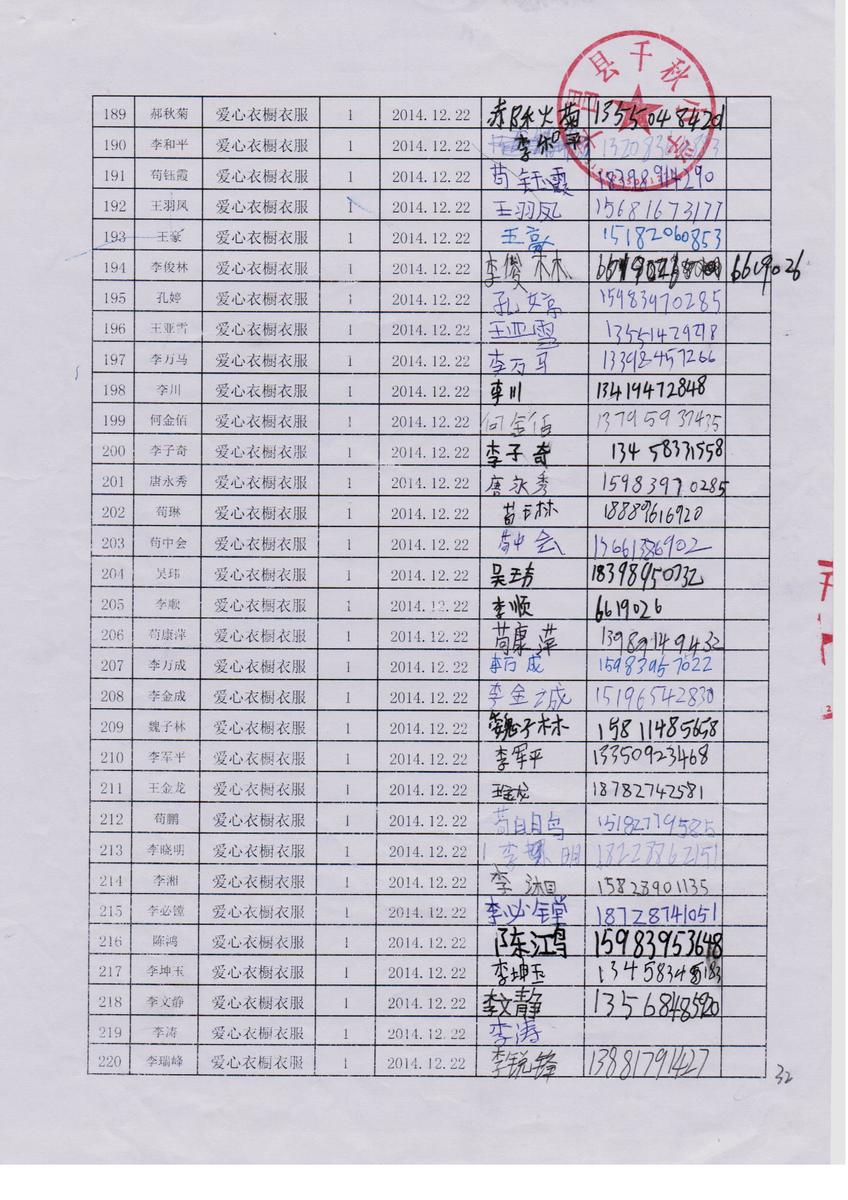 189 郝秋菊 爱心衣橱衣服 1 2014.12.22 郝秋菊 13550484201
190 李和平 爱心衣橱衣服 1 2014.12.22 李和平
191 苟钰霞 爱心衣橱衣服 1 2014.12.22 苟钰霞 18398914290
192 王羽凤 爱心衣橱衣服 1 2014.12.22 王羽凤 15681673177
193 王豪 爱心衣橱衣服 1 2014.12.22 王豪 15182060853
194 李俊林 爱心衣橱衣服 1 2014.12.22 李俊林 6619026
195 孔婷 爱心衣橱衣服 1 2014.12.22 孔婷 15983970285
196 王亚雪 爱心衣橱衣服 1 2014.12.22 王亚雪
197 李万马 爱心衣橱衣服 1 2014.12.22 李万马 13398457266
198 李川 爱心衣橱衣服 1 2014.12.22 李川 13419472848
199 何金佰 爱心衣橱衣服 1 2014.12.22 何金佰 13795937435
200 李子奇 爱心衣橱衣服 1 2014.12.22 李子奇 13458331558
201 唐永秀 爱心衣橱衣服 1 2014.12.22 唐永秀 15983970285
202 苟琳 爱心衣橱衣服 1 2014.12.22 苟琳 18889616920
203 苟中会 爱心衣橱衣服 1 2014.12.22 苟中会
204 吴玮 爱心衣橱衣服 1 2014.12.22 18398950732
205 李顺 爱心衣橱衣服 1 2014.12.22 李顺 6619026
206 苟康萍 爱心衣橱衣服 1 2014.12.22 苟康萍 13989149432
207 李万成 爱心衣橱衣服 1 2014.12.22 李万成 15983957022
208 李金成 爱心衣橱衣服 1 2014.12.22 李金诚 15196542830
209 魏子林 爱心衣橱衣服 1 2014.12.22 魏子林 15811485658
210 李军平 爱心衣橱衣服 1 2014.12.22 李军平 13350923468
211 王金龙 爱心衣橱衣服 1 2014.12.22 王金龙 18782742581
212 苟鹏 爱心衣橱衣服 1 2014.12.22 苟鹏 15182779585
213 李晓明 爱心衣橱衣服 1 2014.12.22 18228862151
214 李湘 爱心衣橱衣服 1 2014.12.22 李湘 15828901135
215 李必镗 爱心衣橱衣服 1 2014.12.22 李必镗 18728741051
216 陈鸿 爱心衣橱衣服 1 2014.12.22 陈鸿 15983953648
217 李坤玉 爱心衣橱衣服 1 2014.12.22 李坤玉
218 李文静 爱心衣橱衣服 1 2014.12.22 李文静 13568485920
219 李涛 爱心衣橱衣服 1 2014.12.22 李涛
220 李瑞峰 爱心衣橱衣服 1 2014.12.22 李锐锋 13881791427
32